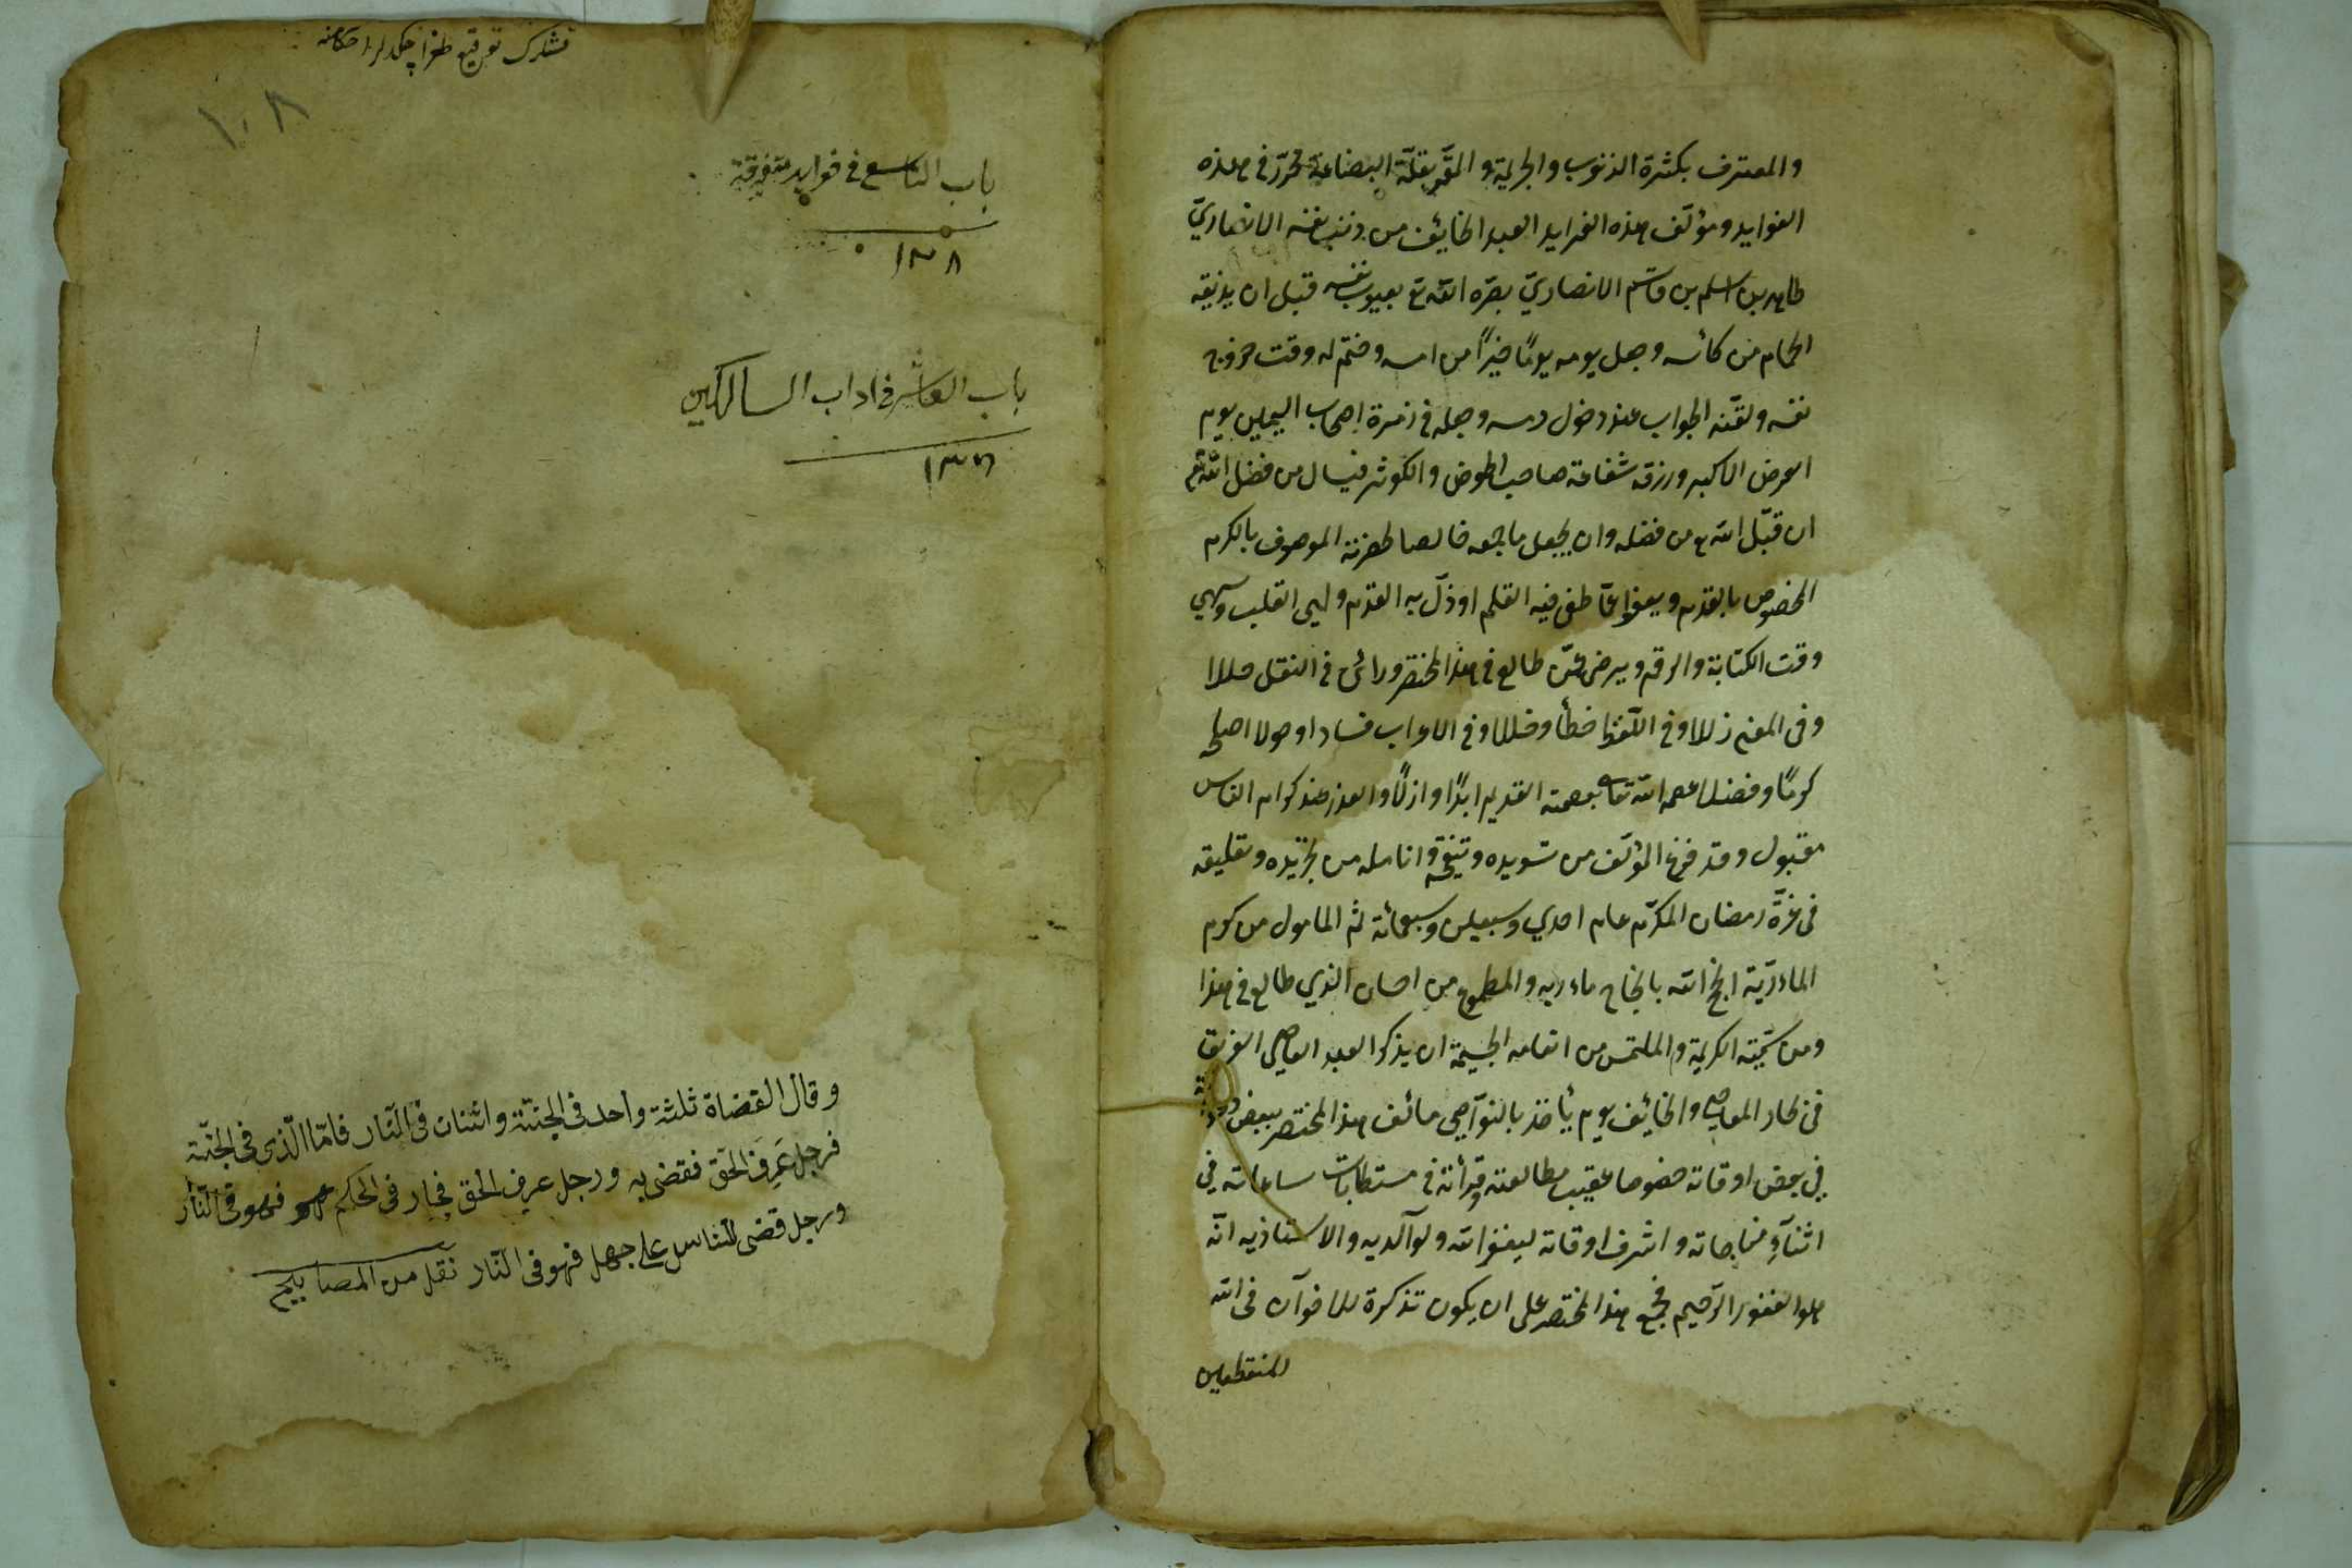 والمعترف بكثرة الذنوب والجريمة والمقر بقلة البضاعة محرر في هذه
الفوايد ومؤلف هذه الفرايد العبد الخايف من ذنب نفسه الانصاري
طاهر بن اسلم بن قاسم الانصاري بصره الله تع بعيوب نفسه قبل ان يذيقه
الحمام من كأسه وجعل يومه يومًا خيرًا من امسه وختم له وقت خروج
نفسه ولقنه الجواب عند دخول رمسه وجعله في زمرة اصحاب اليمين يوم
العرض الاكبر ورزقه شفاعة صاحب الحوض والكوثر فيسال من فضل الله
ان قبل الله من فضله وان يجعل ما جمعه خالصا لحضرته الموصوف بالكرم
المخصوص بالقدم ويعفوا عما طغى فيه القلم او ذل به القدم ولهى القلب وسهي
وقت الكتابة والرقم ويرضى عمن طالع في هذا المختصر وراى في النقل خللا
وفى المعنى زللا وفي اللفظ خطأ وخللا وفى الاعراب فسادا وحولا اصلحه
كرمًا وفضلا عصمه الله تعالى بعصمته القديم ابدًا وازلًا والعذر عند كرام الناس
مقبول وقد فرغ المؤلف من تسويده وتنقيحه وانامله من تجريده وتعليقه
فى غرة رمضان المكرم عام احدي وسبعين وسبعمائة ثم المامول من كرم
انجح الله بالنجاح مآربه والمطموع من احسان الذي طالع في هذا
ومن سجيته الكريمة والملتمس من انعامه الجسيمة ان يذكر العبد العاصي الغريق
في بحار المعاصي والخايف يوم يأخذ بالنواصي مؤلف هذا المختصر ببعض
في بعض اوقاته خصوصا عقيب مطالعته وقرأته في مستطابات ساعاته في
اثنآء مناجاته واشرف اوقاته ليغفر الله ولوالديه والاستاذيه انه
هو الغفور الرحيم فجمع هذا المختصر على ان يكون تذكرة للاخوان فى الله
المنقطعين
توقيع طغرا
١٠٨
باب التاسع فى فوايد متفرقة
١٣٨
باب العاشر فى اداب السالكين
وقال القضاة ثلثة واحد فى الجنّة واثنان فى النّار فامّا الّذى فى الجنّة
فرجل عَرِفَ الحقّ فقضى به ورجل عرف الحق فجار فى الحكم فهو فى النّار
ورجل قضى للناس على جهل فهو فى النّار نقل من المصابيح